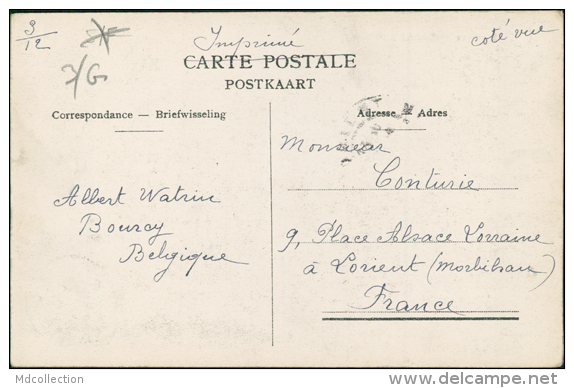 3/12
7/G
Imprimé
coté vue
CARTE POSTALE
POSTKAART
Correspondance — Briefwisseling
Adresse - Adres
Monsieur
Conturie
9, Place Alsace Lorraine
à Lorient (Morbihan)
France
Albert Watrin
Bourcy
Belgique
Mdcollection
delcampe.net